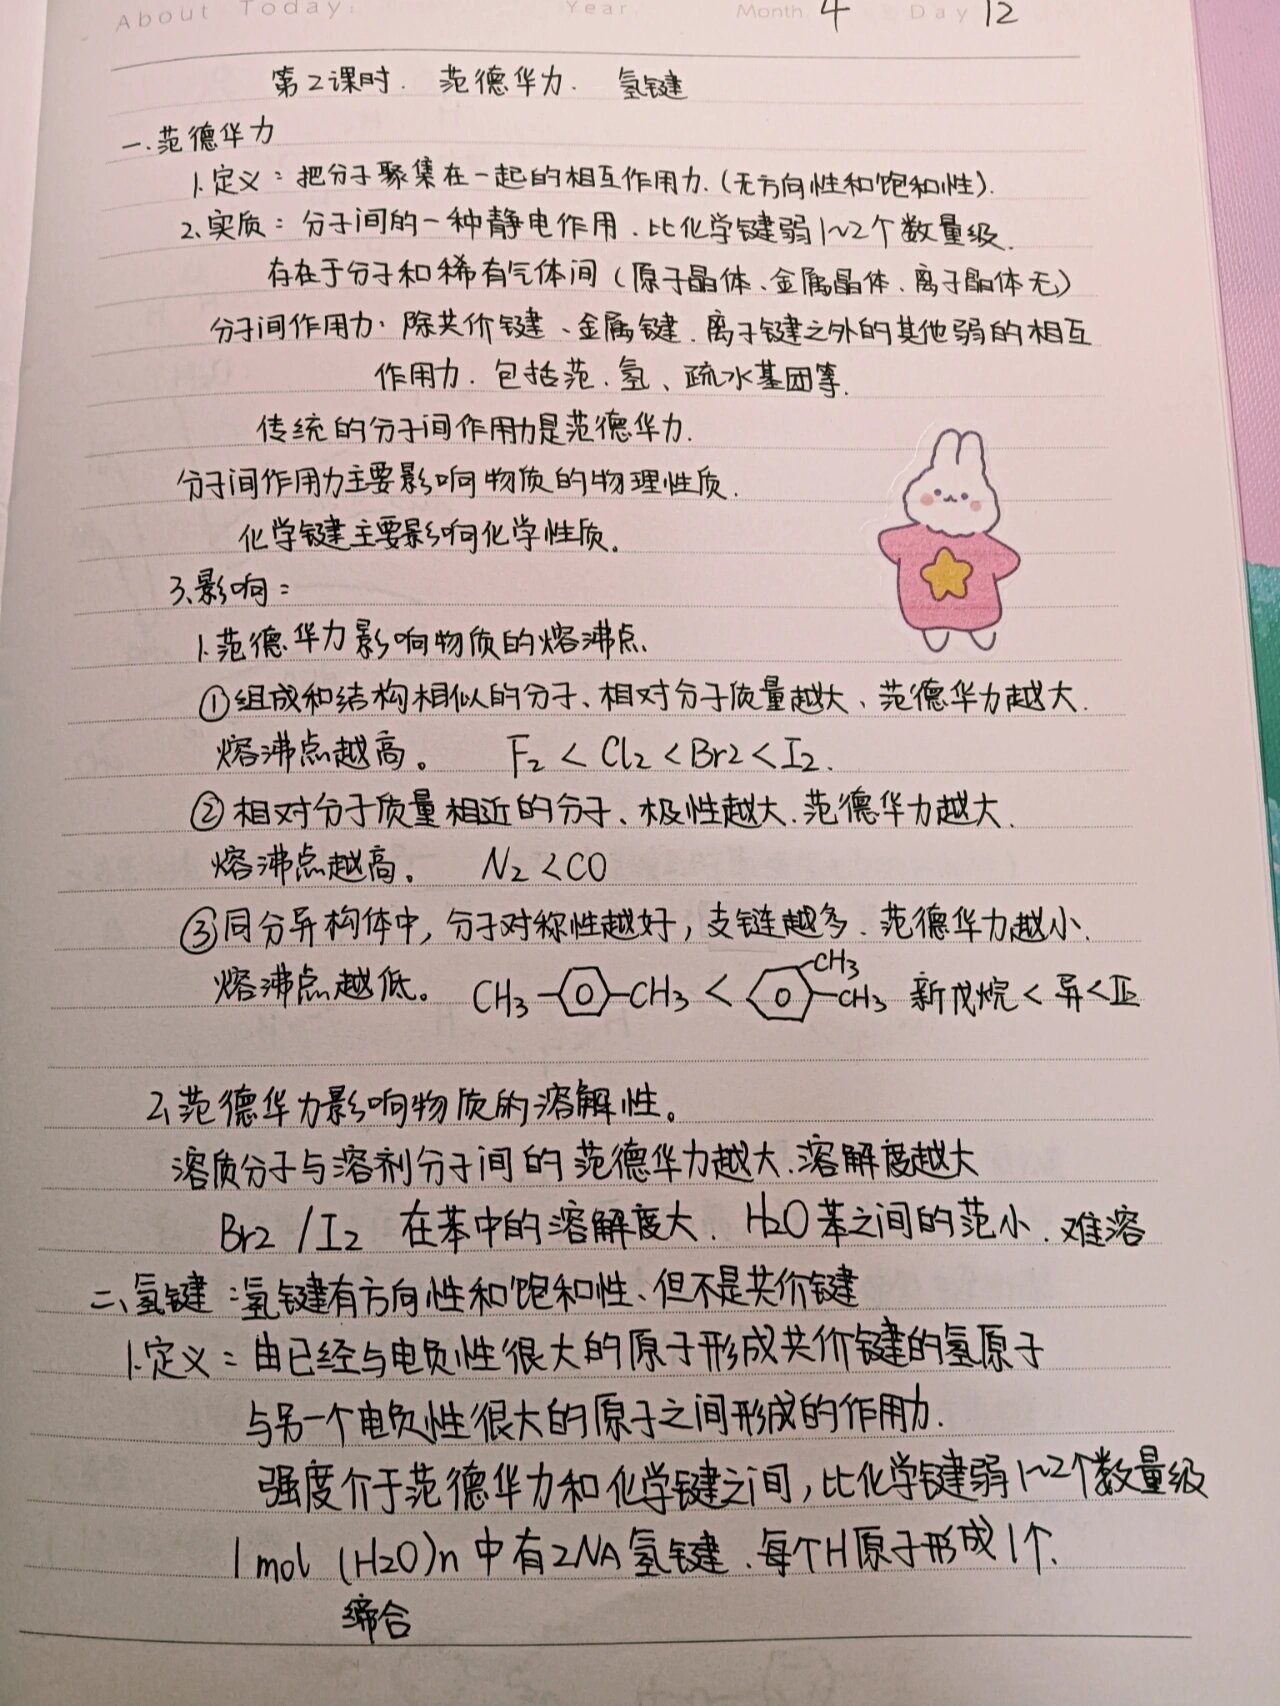 About Today:   Year   Month 4   Day 12
第2课时. 范德华力. 氢键
一.范德华力
1.定义：把分子聚集在一起的相互作用力.(无方向性和饱和性).
2、实质：分子间的一种静电作用.比化学键弱1~2个数量级.
存在于分子和稀有气体间(原子晶体、金属晶体、离子晶体无)
分子间作用力：除共价键、金属键.离子键之外的其他弱的相互
作用力.包括范.氢、疏水基团等.
传统的分子间作用力是范德华力.
分子间作用力主要影响物质的物理性质.
化学键主要影响化学性质。
3、影响：
1.范德华力影响物质的熔沸点、
①组成和结构相似的分子、相对分子质量越大、范德华力越大.
熔沸点越高。 F2 < Cl2 < Br2 < I2.
②相对分子质量相近的分子、极性越大.范德华力越大.
熔沸点越高。 N2 < CO
③同分异构体中,分子对称性越好,支链越多.范德华力越小.
熔沸点越低。 CH3 CH3 < CH3 CH3 新戊烷 < 异 < 正
2、范德华力影响物质的溶解性。
溶质分子与溶剂分子间的范德华力越大.溶解度越大
Br2 / I2 在苯中的溶解度大. H2O苯之间的范小.难溶
二、氢键：氢键有方向性和饱和性、但不是共价键
1.定义：由已经与电负性很大的原子形成共价键的氢原子
与另一个电负性很大的原子之间形成的作用力.
强度介于范德华力和化学键之间,比化学键弱1~2个数量级
1mol (H2O)n 中有2NA氢键.每个H原子形成1个.
缔合